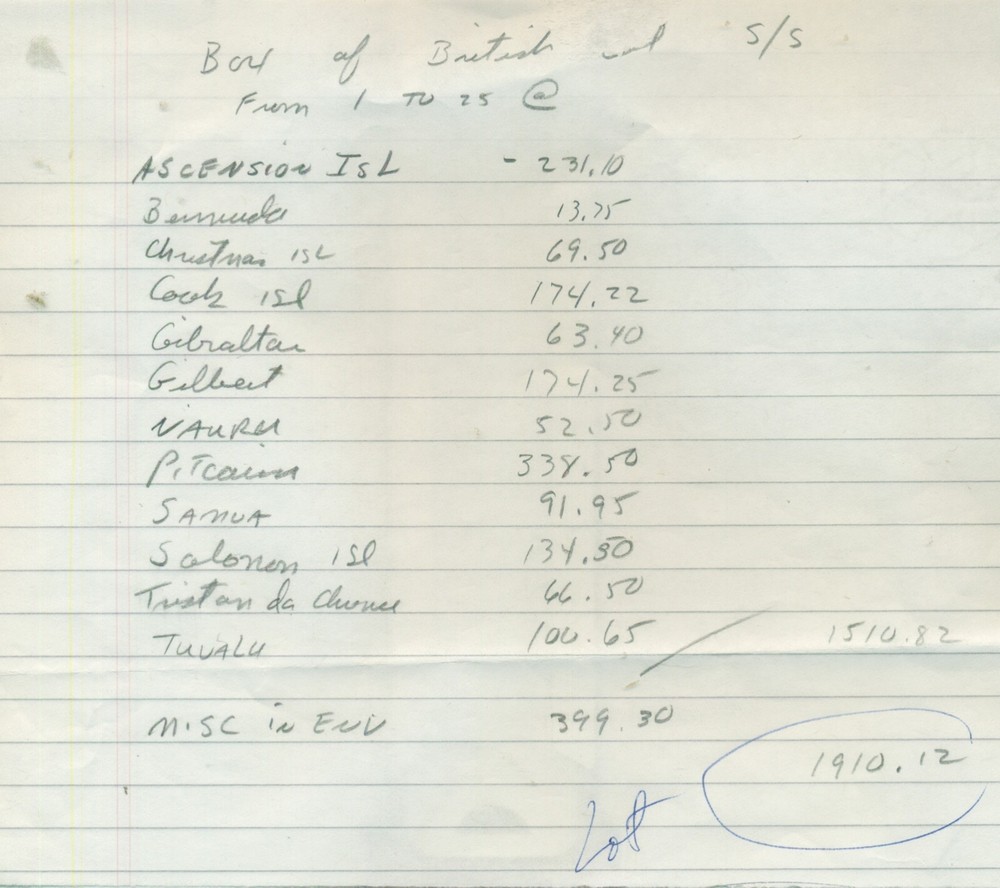 Box of British S/S
From 1 TO 25 @
ASCENSION ISL - 231.10
Bermuda 13.75
Christmas ISL 69.50
Cook isl 174.22
Gibraltar 63.40
Gilbert 174.25
NAURU 52.50
PiTcairn 338.50
SAMOA 91.95
Solomon isl 134.50
Tristan da 66.50
TUVALU 100.65 / 1510.82
MISC in ENV 399.30
1910.12
Lot